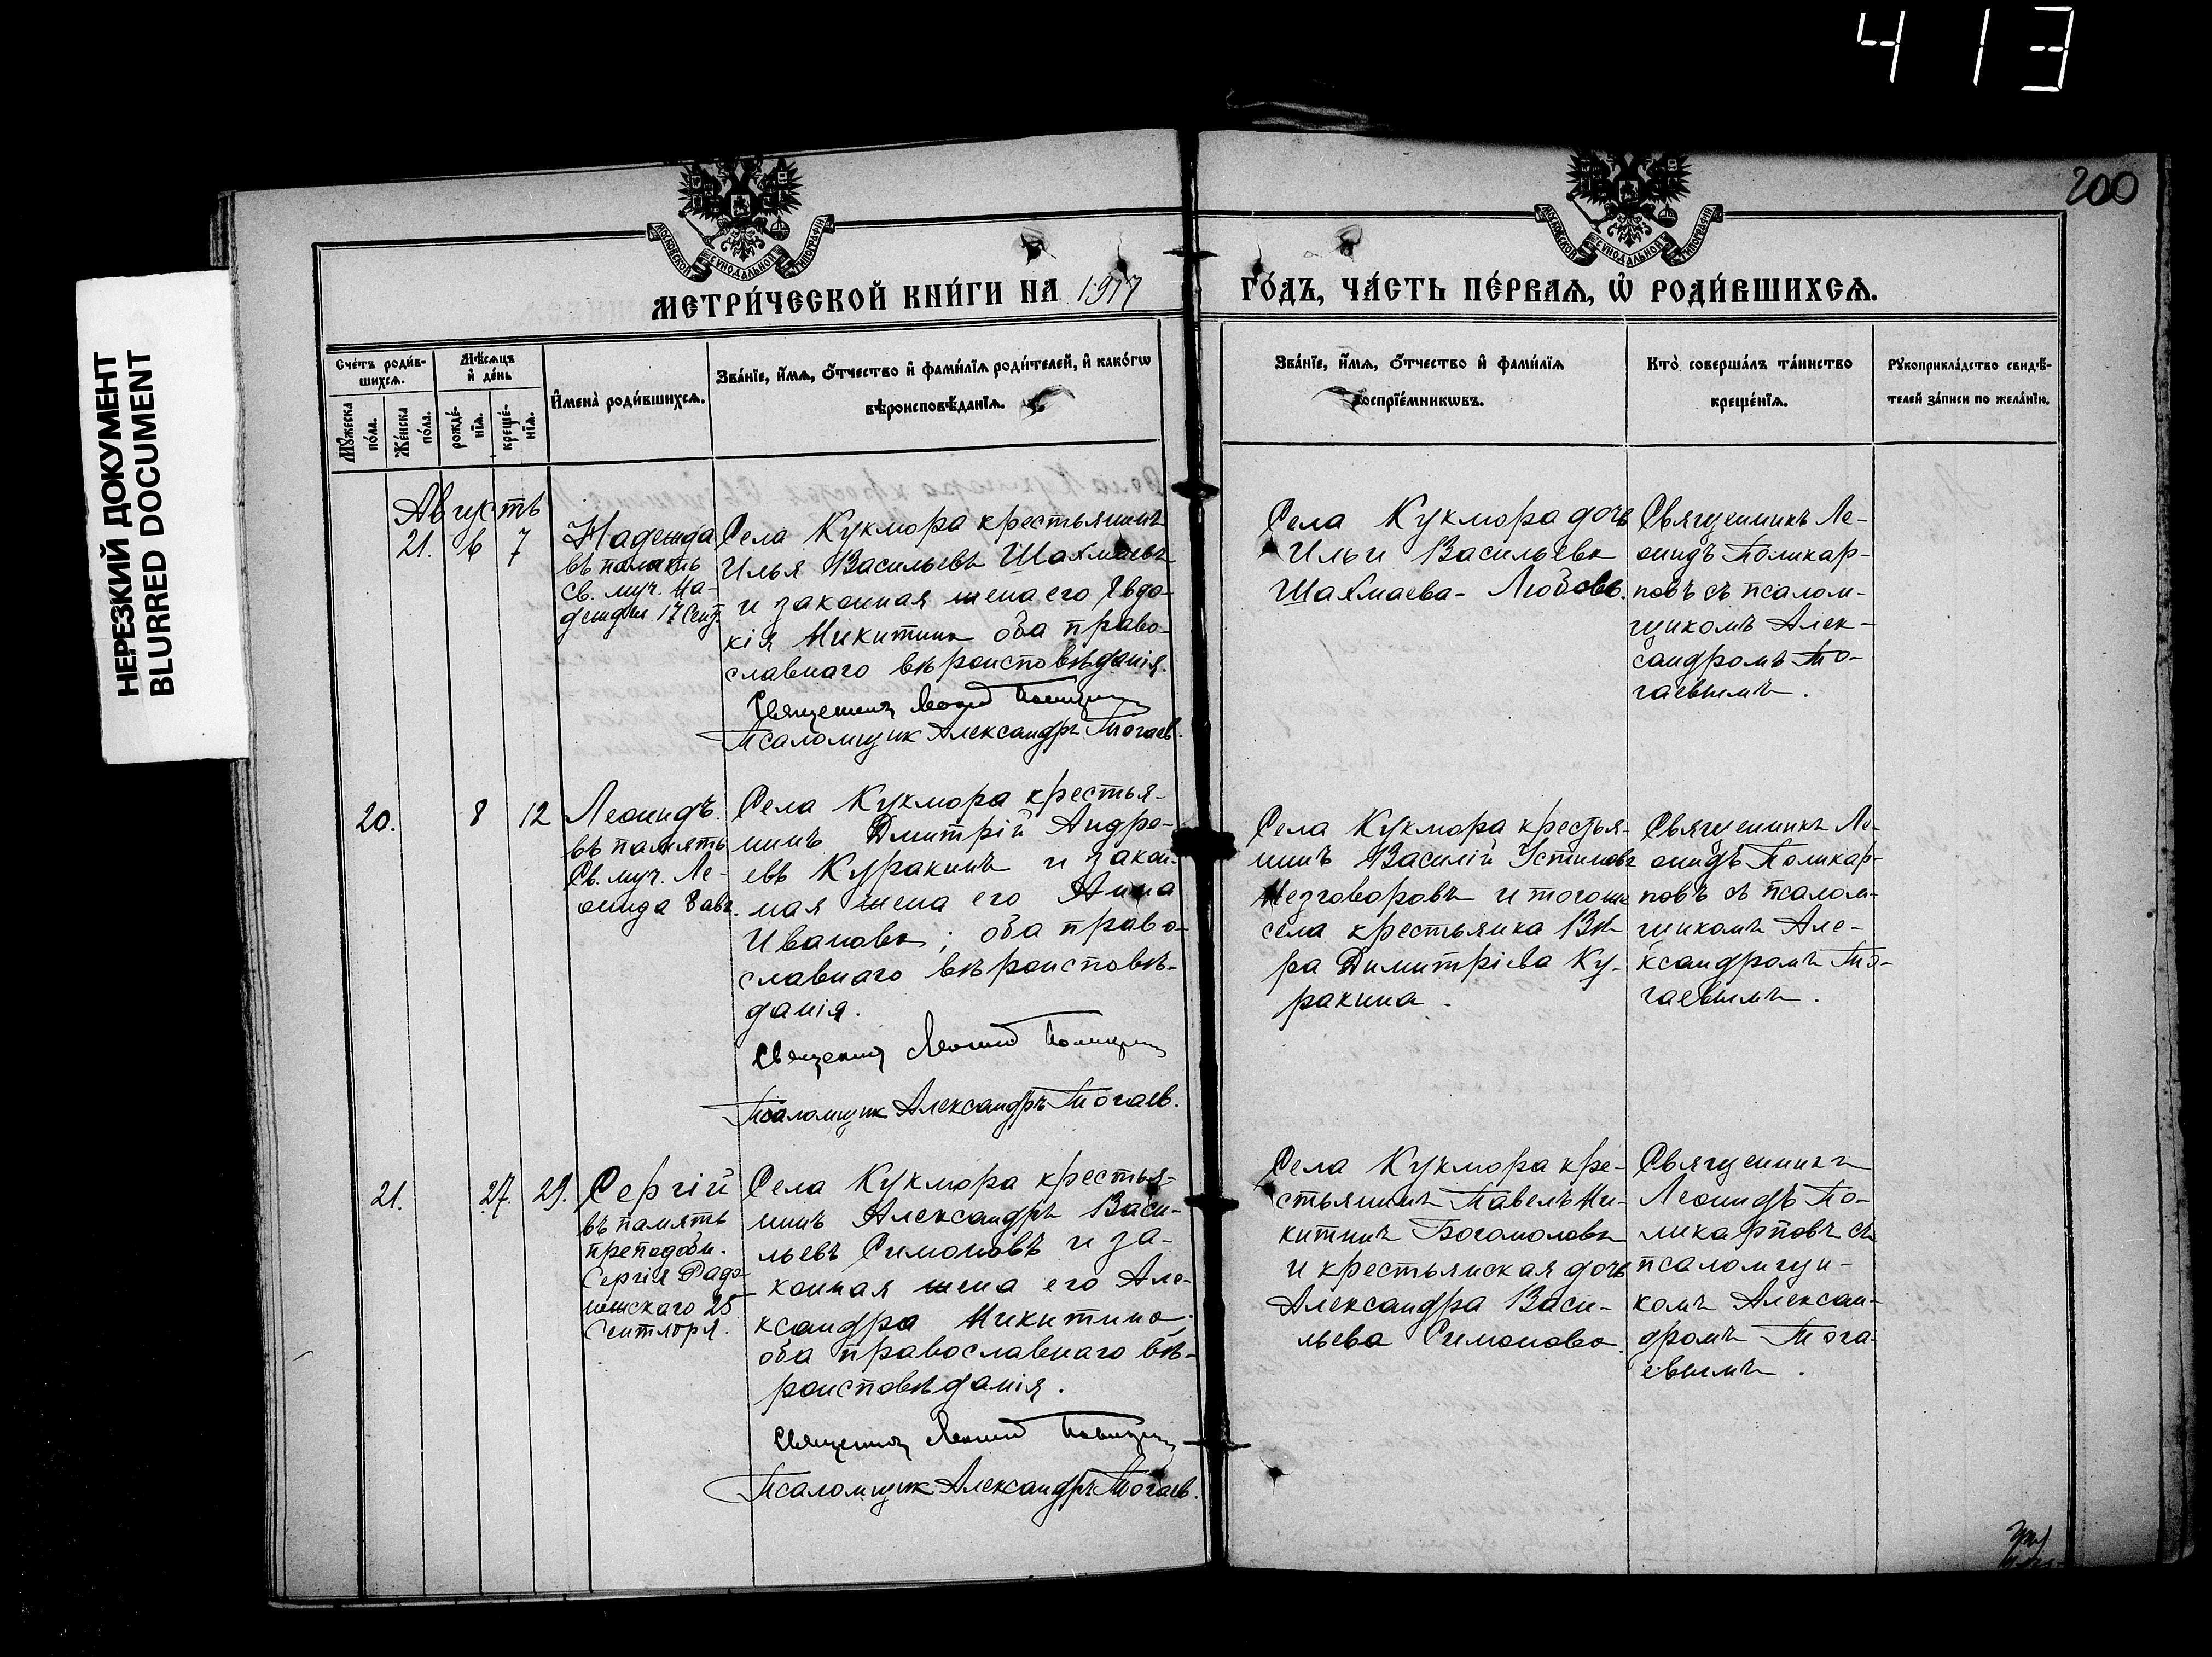 413
200
НЕРЕЗКИЙ ДОКУМЕНТ
BLURRED DOCUMENT
МОСКОВСКОЙ СѴНОДАЛЬНОЙ ТИПОГРАФІИ
МОСКОВСКОЙ СѴНОДАЛЬНОЙ ТИПОГРАФІИ
МЕТРИ́ЧЕСКОЙ КНИ́ГИ НА 1917 ГО́ДЪ, ЧА́СТЬ ПЕ́РВАѦ, Ѡ҆ РОДИ́ВШИХСѦ.
Сче́тъ роди́в-
шихсѧ.
Мꙋ́жеска
по́ла.
Же́нска
по́ла.
Мѣ́сѧцъ
и҆ де́нь
рожде́-
нїѧ.
креще́-
нїѧ.
И҆мена̀ роди́вшихсѧ.
Зва́нїе, и҆́мѧ, ѻ҆́тчество и҆ фами́лїѧ роди́телей, и҆ како́гѡ
вѣроисповѣ́данїѧ.
Зва́нїе, и҆́мѧ, ѻ҆́тчество и҆ фами́лїѧ
воспрїе́мникѡвъ.
Кто̀ соверша́лъ та́инство
креще́нїѧ.
Рꙋкоприкла́дство свидѣ́-
телей за́писи по жела́нїю.
Августъ
21. 6 7
Надежда
въ память
Св. муч. На-
дежды 17 Сент.
Села Кукмора крестьянинъ
Илья Васильевъ Шахмаевъ
и законная жена его Евдо-
кія Никитина оба право-
славнаго вѣроисповѣданія.
Священникъ Леонид Поликарпов
Псаломщик Александръ Тогаев.
Села Кукмора дочь
Ильи Васильева
Шахмаева - Любовь.
Священникъ Ле-
онидъ Поликар-
повъ съ псалом-
щикомъ Алек-
сандромъ То-
гаевымъ.
20. 8 12
Леонидъ.
въ память
Св. муч. Ле-
онида 8 авг.
Села Кукмора крестья-
нинъ Дмитрій Андре-
евъ Куракинъ и закон-
ная жена его Анна
Иванова; оба право-
славнаго вѣроисповѣ-
данія.
Священник Леонид Поликарпов
Псаломщик Александръ Тогаев.
Села Кукмора крестья-
нинъ Василій Устиновъ
Незговоровъ и тогоже
села крестьянка Вѣ-
ра Димитріева Ку-
ракина.
Священникъ Ле-
онидъ Поликар-
повъ съ псалом-
щикомъ Але-
ксандромъ То-
гаевымъ.
21. 27. 29.
Сергій
въ память
преподобн.
Сергія Радо-
нежскаго 25
Сентября.
Села Кукмора крестья-
нинъ Александръ Васи-
льевъ Симоновъ и за-
конная жена его Але-
ксандра Никитина;
оба православнаго вѣ-
роисповѣданія.
Священник Леонид Поликарпов
Псаломщик Александръ Тогаев.
Села Кукмора кре-
стьянинъ Павелъ Ни-
китинъ Богомоловъ
и крестьянская дочь
Александра Васи-
льева Симонова.
Священникъ
Леонидъ По-
ликарповъ съ
псаломщи-
комъ Алексан-
дромъ Тога-
евымъ.